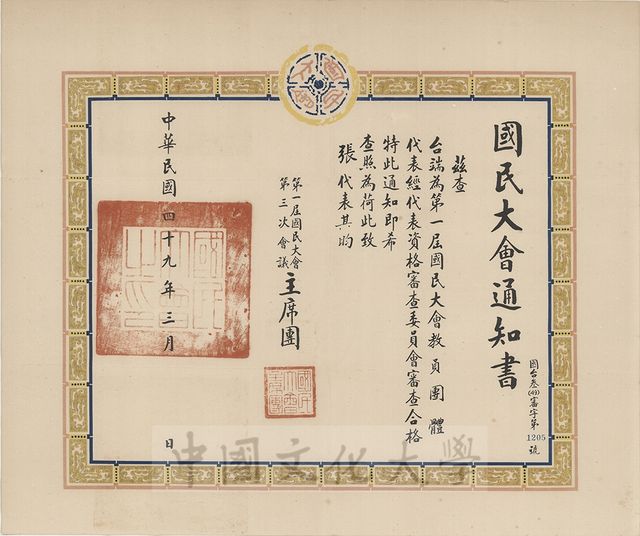 國民大會通知書
國台叁(49)審字第1205號
茲查
台端為第一屆國民大會教員團體
代表經代表資格審查委員會審查合格
特此通知即希
查照為荷此致
張代表其昀
第一屆國民大會
第三次會議
主席團
中華民國四十九年三月 日
中國文化大學